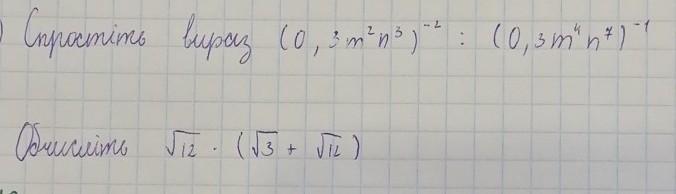 ) Спростіть вираз (0,3m²n³)⁻² : (0,3m⁴n⁷)⁻¹
Обчисліть √12 · (√3 + √12)